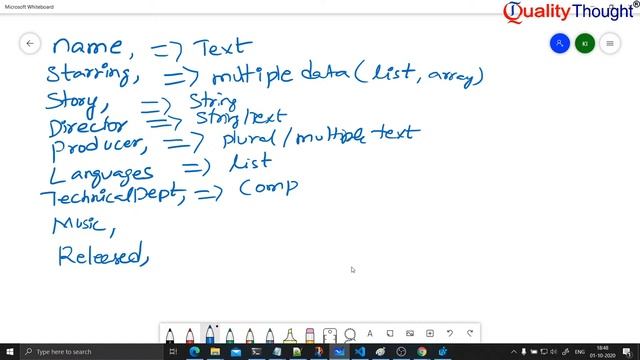 Microsoft Whiteboard
QualityThought®
name, => Text
Starring, => multiple data (list, array)
Story, => String
Director => String/text
producer, => plural/multiple text
Languages => list
TechnicalDept, => Comp
Music,
Released,
KI
A
ENG
18:48
01-10-2020